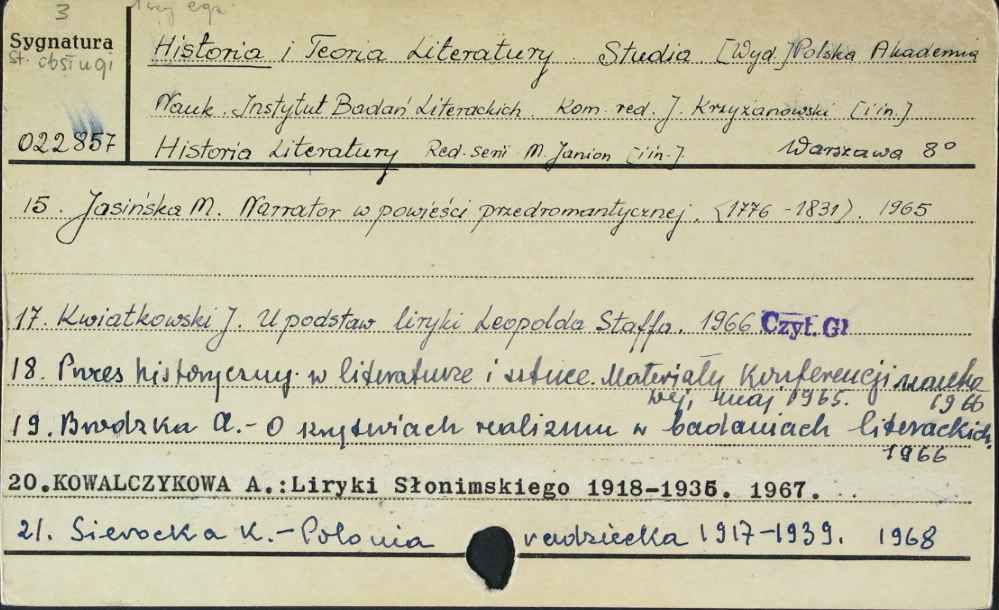 3 egz.
Sygnatura
st. obsługi
022857
Historia i Teoria Literatury. Studia [Wyd.] Polska Akademia
Nauk. Instytut Badań Literackich. Kom. red. J. Krzyżanowski [i in.]
Historia Literatury Red. serii M. Janion [i in.] Warszawa 8°
15. Jasińska M. Narrator w powieści przedromantycznej. (1776-1831). 1965
17. Kwiatkowski J. U podstaw liryki Leopolda Staffa. 1966 Czyt. Gł
18. Proces historyczny w literaturze i sztuce. Materiały Konferencji nauko
wej, maj 1965. 1966
19. Brodzka A. - O kryteriach realizmu w badaniach literackich.
1966
20. KOWALCZYKOWA A.: Liryki Słonimskiego 1918-1935. 1967.
21. Sierocka K. - Polonia radziecka 1917-1939. 1968